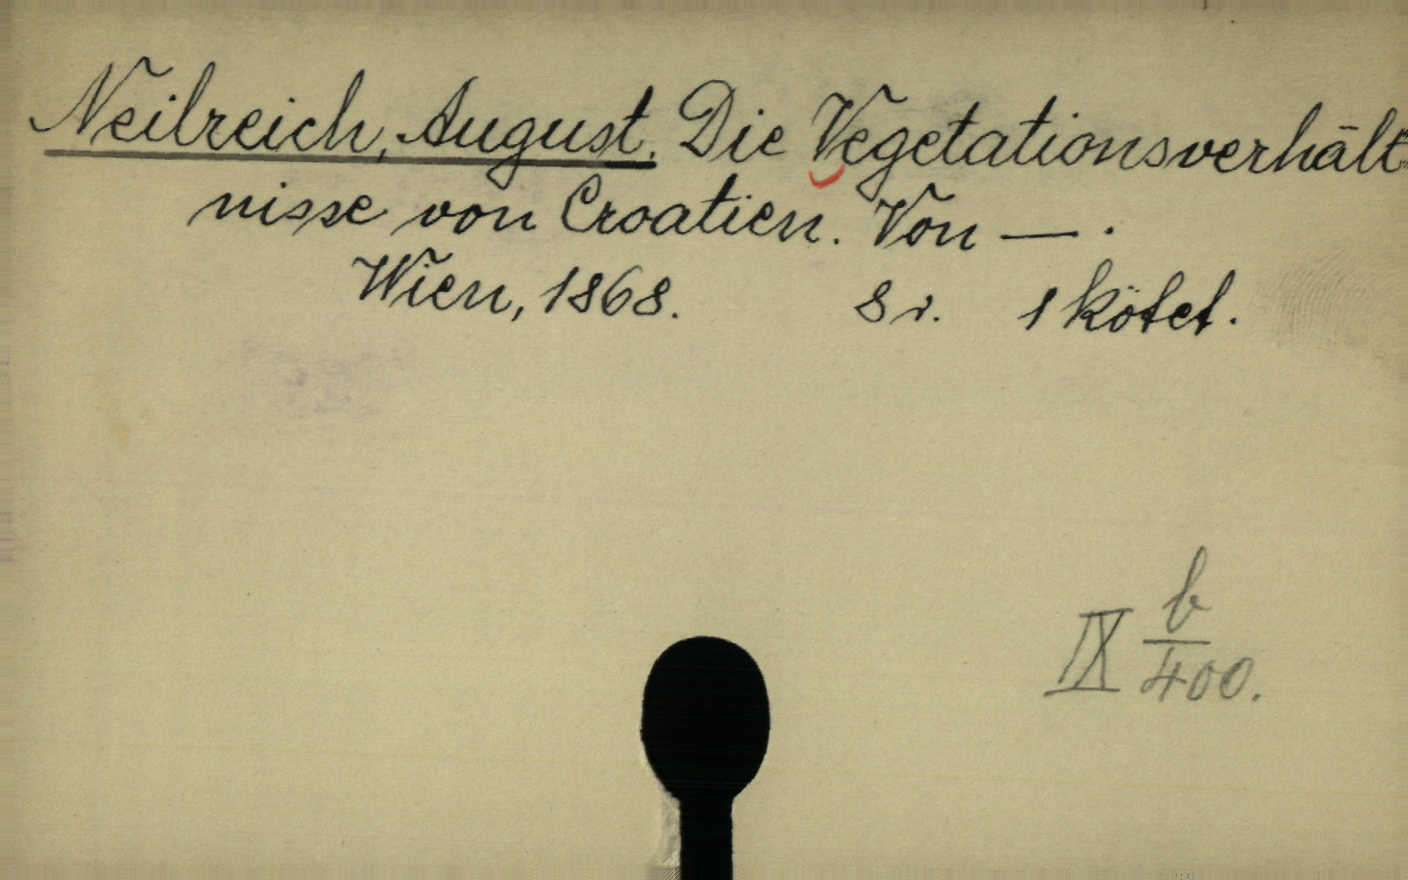 Neilreich, August. Die Vegetationsverhält-
nisse von Croatien. Von — .
Wien, 1868. 8 r. 1 kötet.
IX b/400.